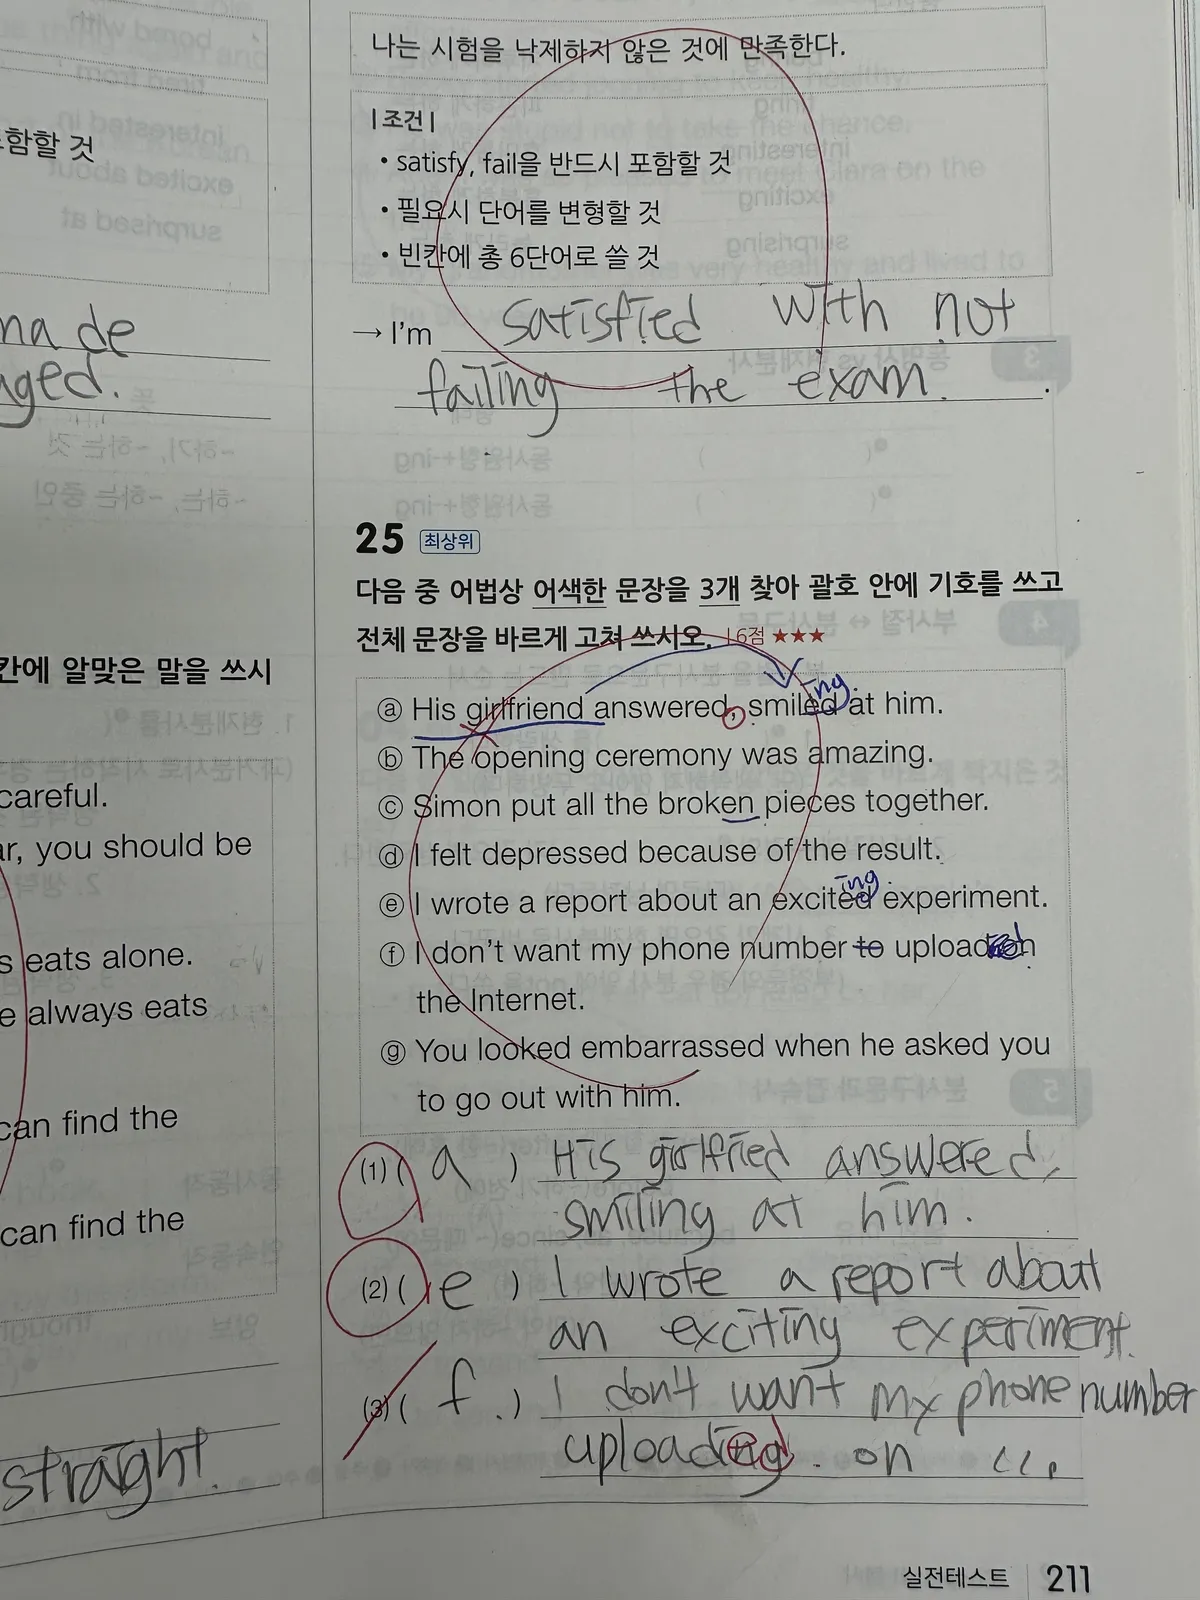 함할 것
made
aged.
칸에 알맞은 말을 쓰시
careful.
ar, you should be
s eats alone.
e always eats
can find the
can find the
straight.
나는 시험을 낙제하지 않은 것에 만족한다.
|조건|
• satisfy, fail을 반드시 포함할 것
• 필요시 단어를 변형할 것
• 빈칸에 총 6단어로 쓸 것
→ I'm satisfied with not
failing the exam.
25 최상위
다음 중 어법상 어색한 문장을 3개 찾아 괄호 안에 기호를 쓰고
전체 문장을 바르게 고쳐 쓰시오. |6점 ★★★
ing.
ⓐ His girlfriend answered, smiled at him.
ⓑ The opening ceremony was amazing.
ⓒ Simon put all the broken pieces together.
ⓓ I felt depressed because of the result.
ing
ⓔ I wrote a report about an excited experiment.
ⓕ I don't want my phone number to upload on
the Internet.
ⓖ You looked embarrassed when he asked you
to go out with him.
(1) ( a ) His girlfried answered,
smiling at him.
(2) ( e ) I wrote a report about
an exciting experiment.
(3) ( f ) I don't want my phone number
uploading. on
실전테스트 211